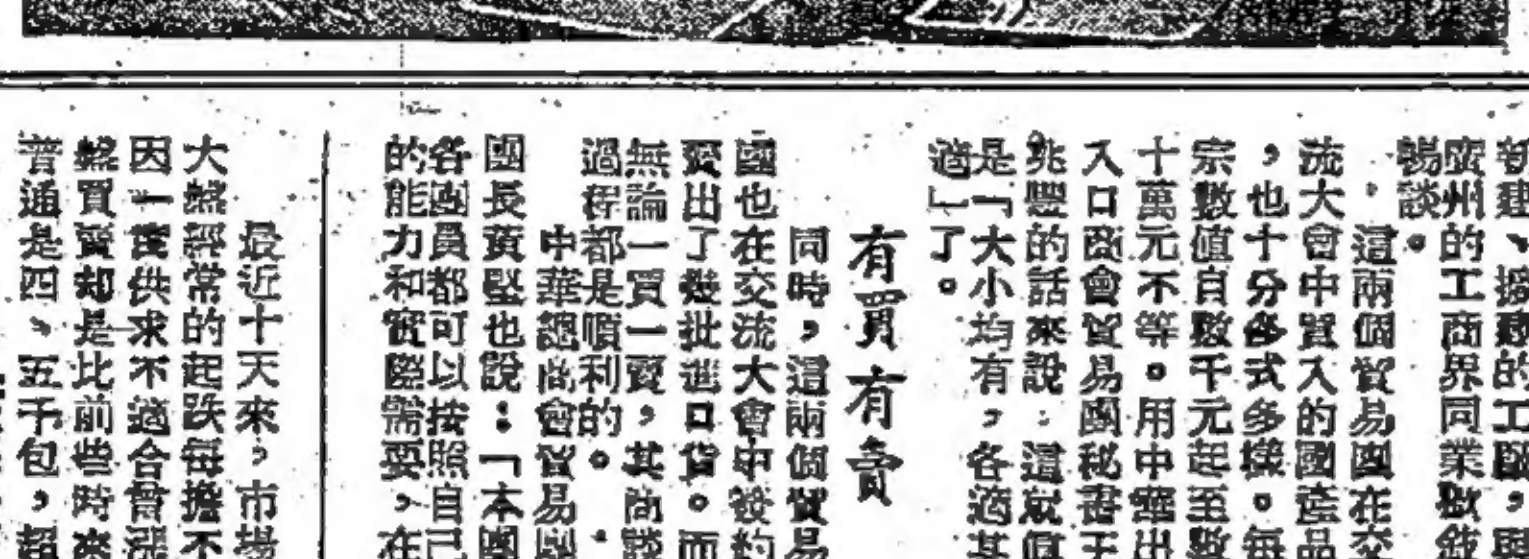 新建、擴建的工厰,與
廣州的工商界同業歡敘
暢談。
這兩個貿易團在交
流大會中買入的國產品
,也十分多式多樣。每
宗數值自數千元起至數
十萬元不等。用中華出
入口商會貿易團秘書王
兆豐的話來說:這就眞
是「大小均有,各適其
適」了。
有買有賣
同時,這兩個貿易
國也在交流大會中簽約
賣出了幾批進口貨。而
無論一買一賣,其商談
過程都是順利的。
中華總商會貿易團
團長黃堅也說:「本團
各團員都可以按照自己
的能力和實際需要,在
最近十天來,市場
大盤經常的起跌每擔不
因一度供求不適合曾漲
盤買賣却是比前些時來
普通是四、五千包,超